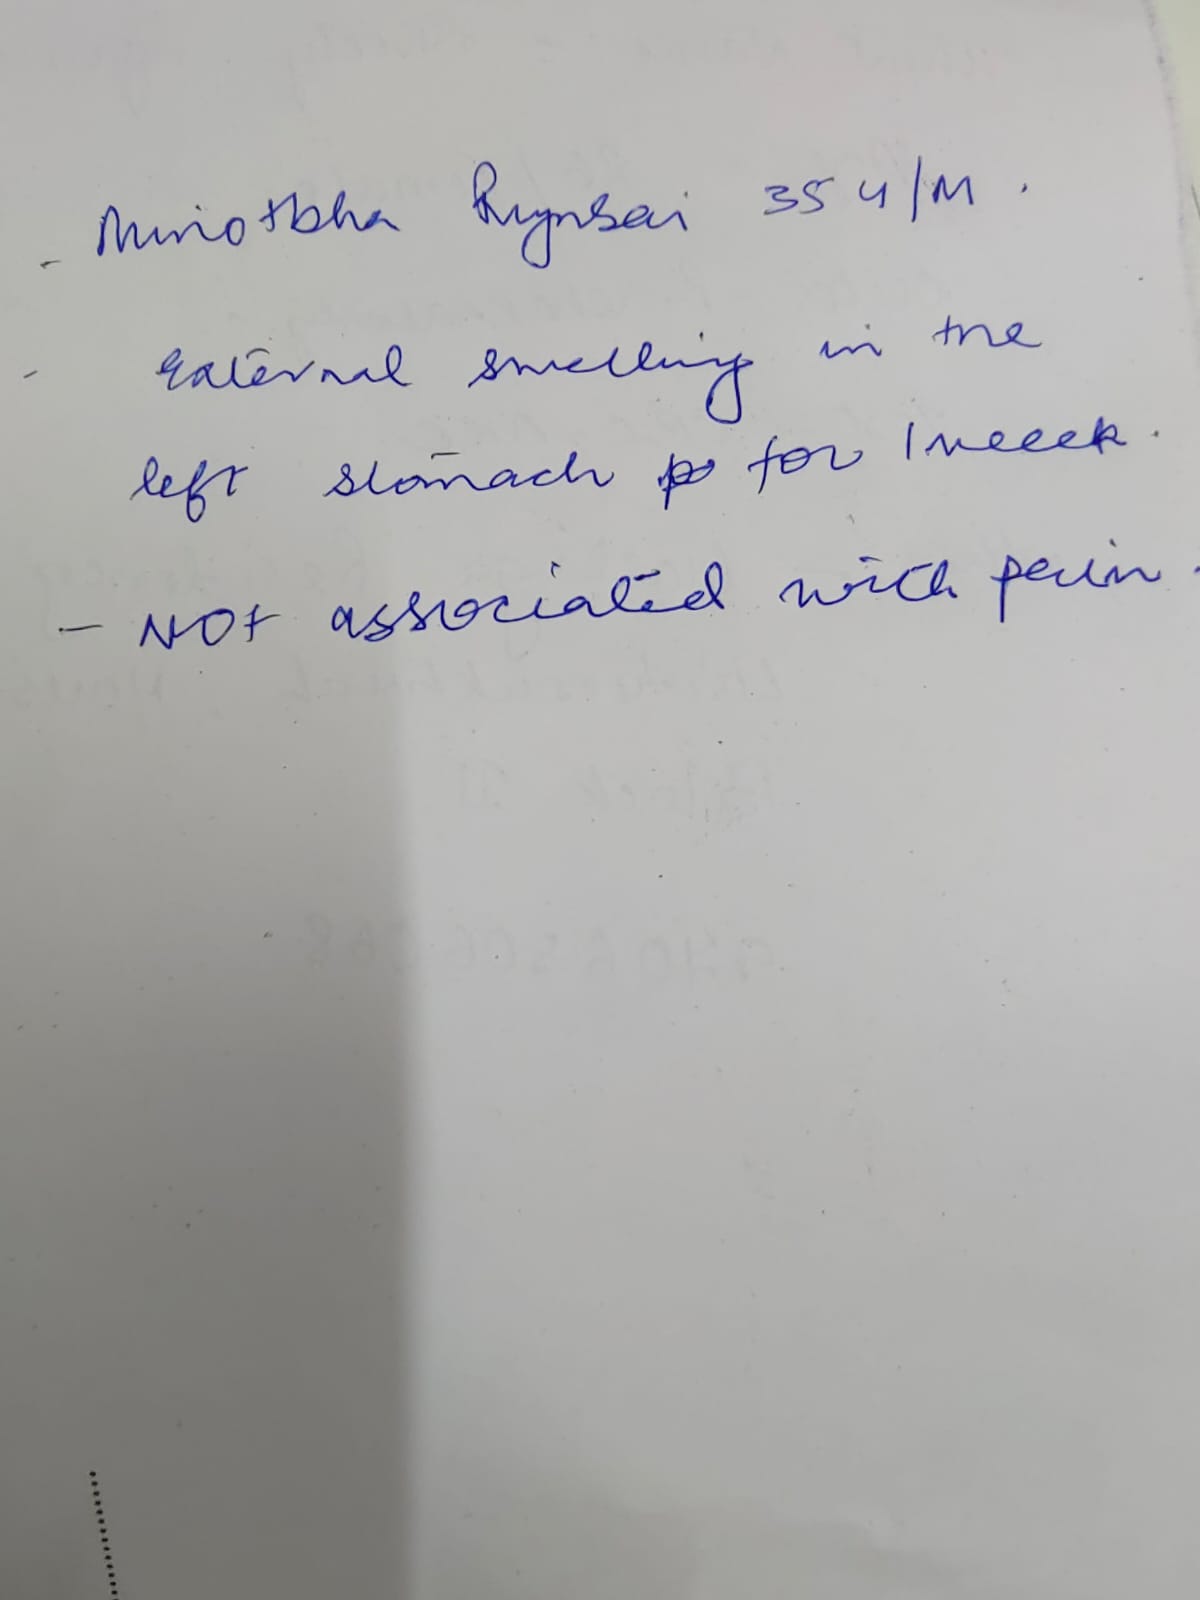 - Miniotbha Rynsai 35 y/M.
- External swelling in the
left stomach for 1 week.
- NOT associated with pain.